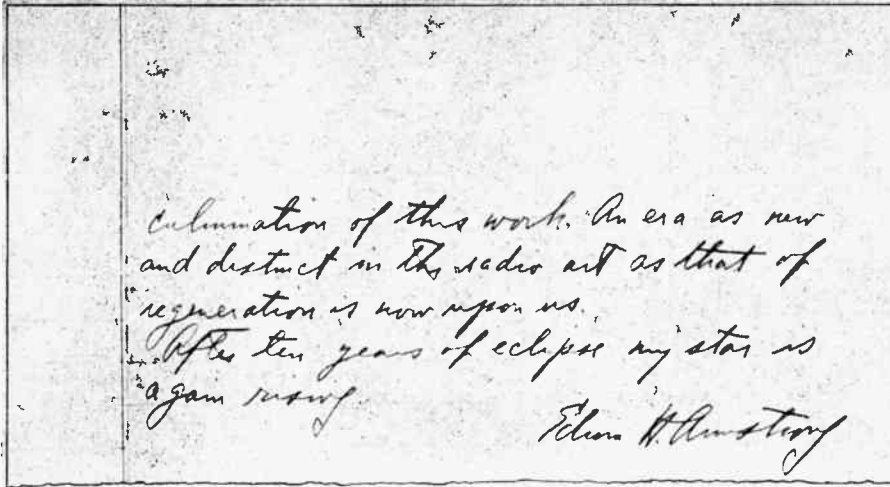 culmination of this work. An era as new
and distinct in the radio art as that of
regeneration is now upon us.
After ten years of eclipse my star is
again rising.
Edwin H. Armstrong